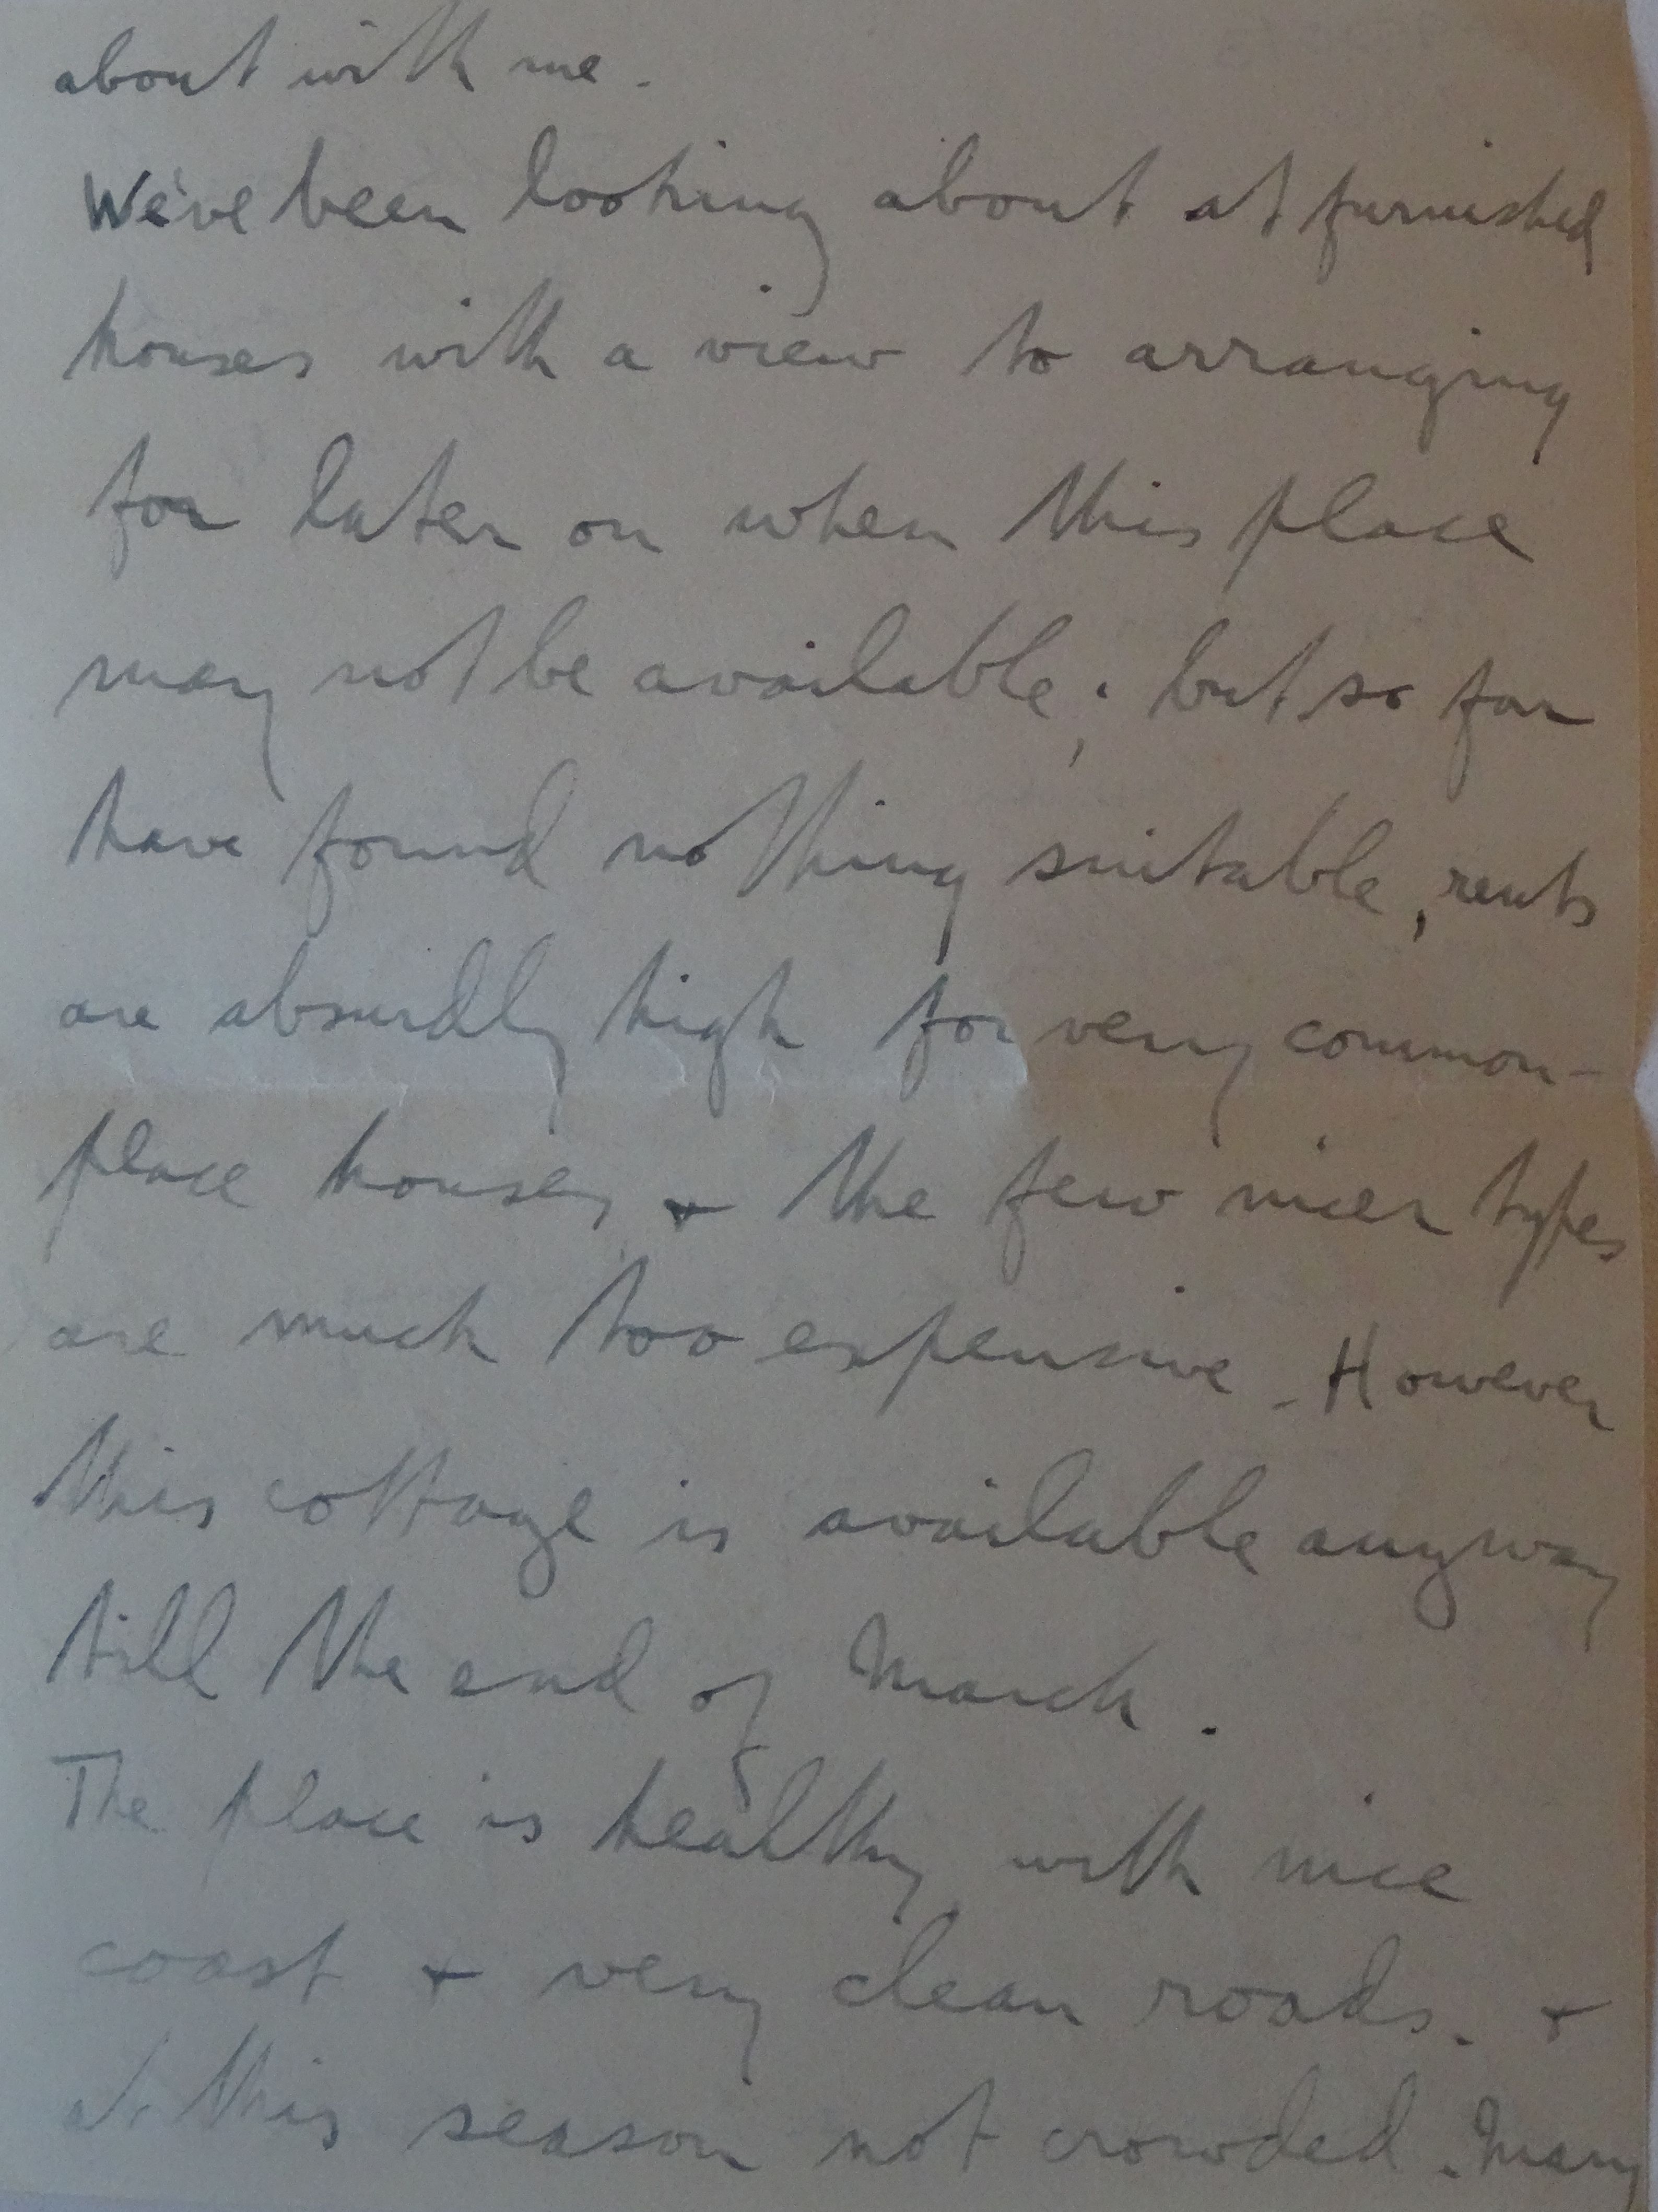 about with me.
We've been looking about at furnished
houses with a view to arranging
for later on when this place
may not be available; but so far
have found nothing suitable, rents
are absurdly high for very common-
place houses, & the few nicer types
are much too expensive. However
this cottage is available anyway
till the end of March.
The place is healthy with nice
coast & very clean roads. &
at this season not crowded. Many